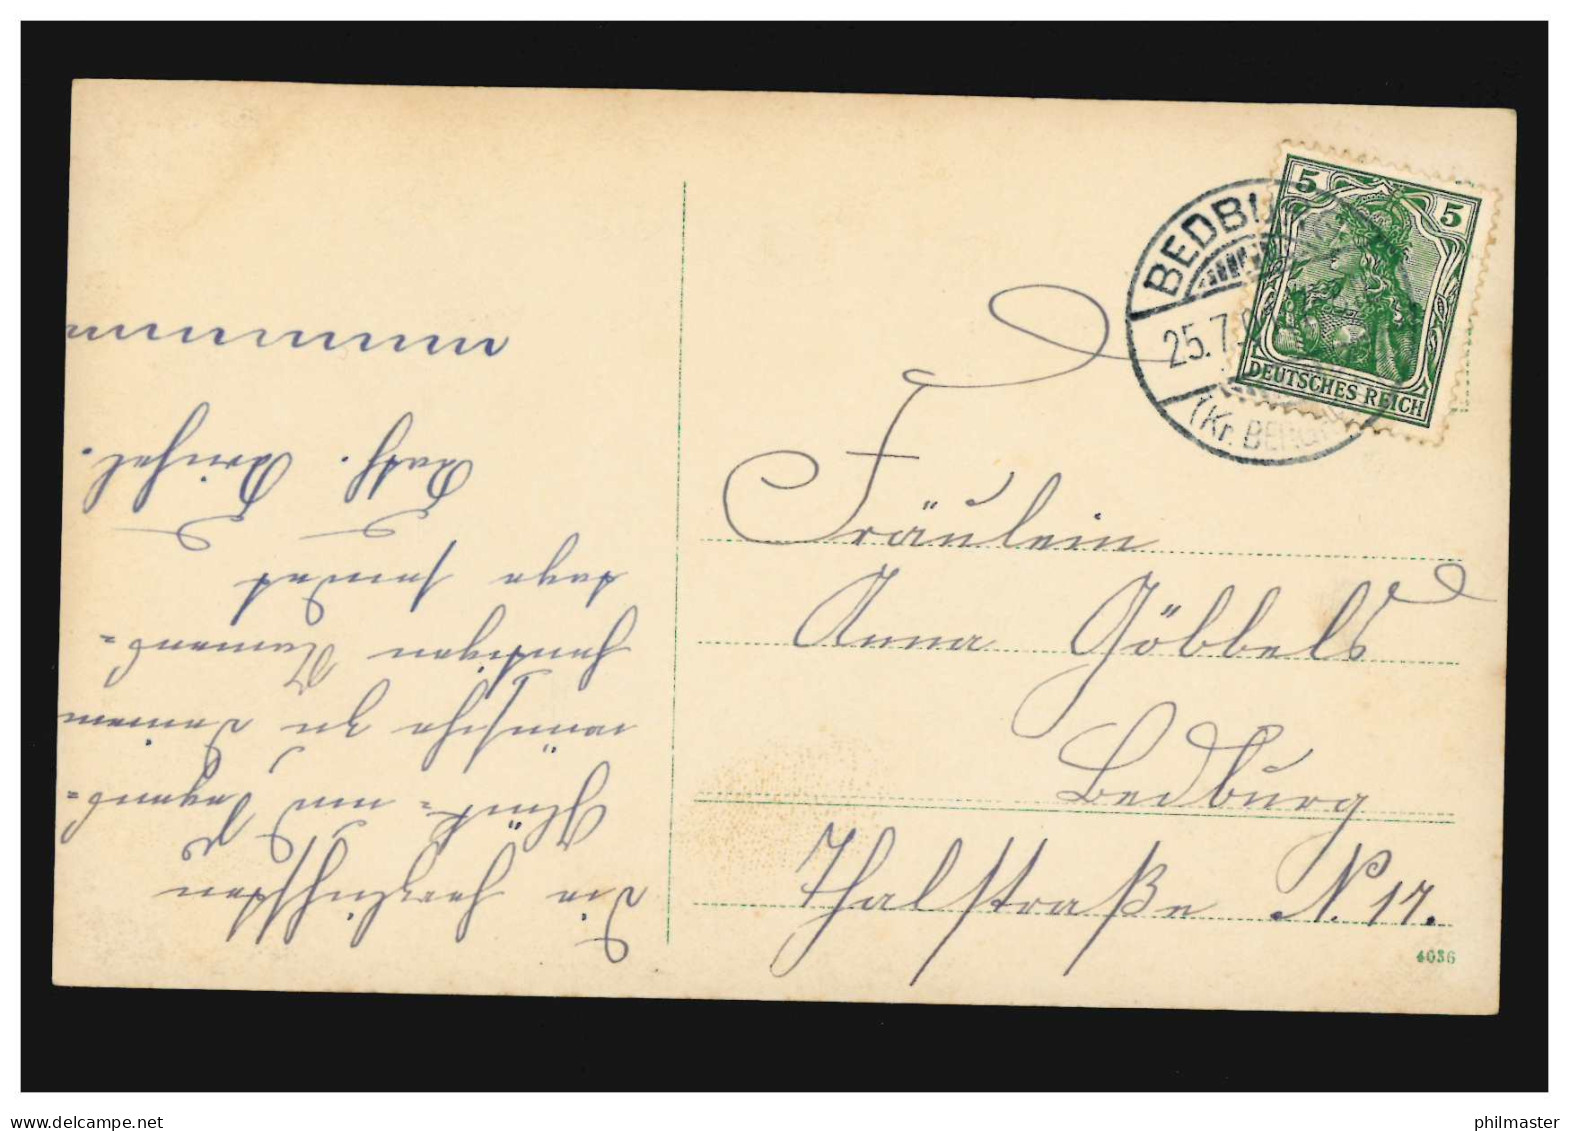 BEDBURG
25.7.
(Kr. BERGH
5 5
DEUTSCHES REICH
Fräulein
Anna Göbbels
Bedburg
Thalstraße N. 17.
4036
Die herzlichsten
Glück= und Segens=
wünsche zu Deinem
heutigen Namens=
tage sendet
Cath.
www.delcampe.net
philmaster